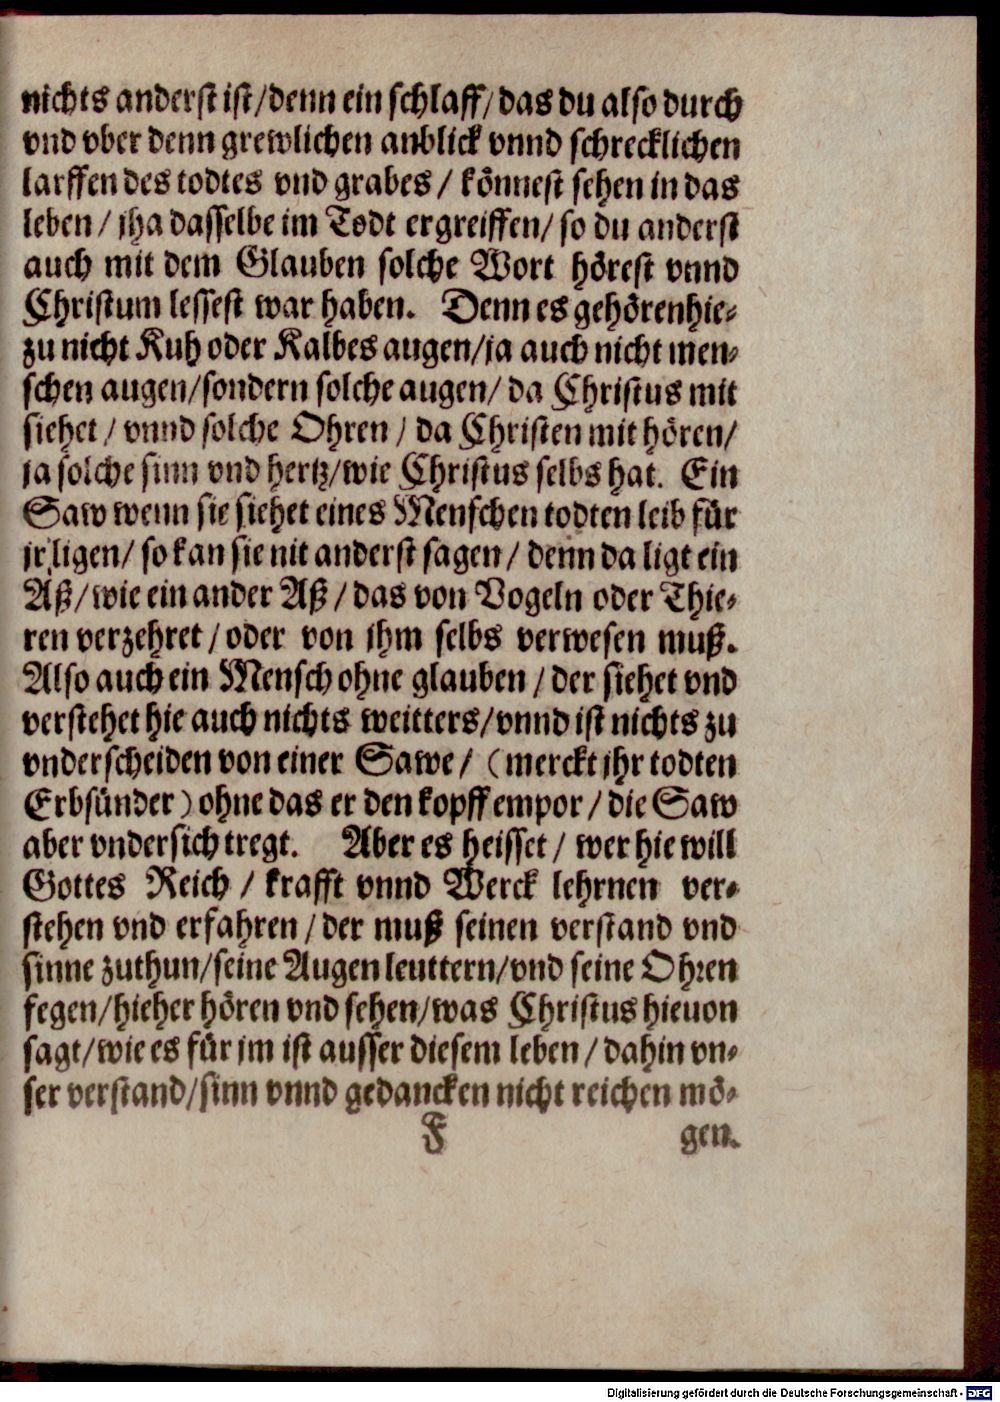 nichts anderst ist/denn ein schlaff/das du also durch
vnd vber denn grewlichen anblick vnnd schrecklichen
larffen des todtes vnd grabes / könnest sehen in das
leben / jha dasselbe im Todt ergreiffen/ so du anderst
auch mit dem Glauben solche Wort hörest vnnd
Christum lessest war haben. Denn es gehörenhie-
zu nicht Kuh oder Kalbes augen/ja auch nicht men-
schen augen/sondern solche augen/ da Christus mit
siehet / vnnd solche Ohren / da Christen mit hören/
ja solche sinn vnd hertz/wie Christus selbs hat. Ein
Saw wenn sie siehet eines Menschen todten leib für
jr ligen/ so kan sie nit anderst sagen / denn da ligt ein
Aß/wie ein ander Aß / das von Vogeln oder Thie-
ren verzehret / oder von jhm selbs verwesen muß.
Also auch ein Mensch ohne glauben / der siehet vnd
verstehet hie auch nichts weitters/vnnd ist nichts zu
vnderscheiden von einer Sawe / (merckt jhr todten
Erbsünder) ohne das er den kopff empor / die Saw
aber vndersich tregt. Aber es heisset / wer hie will
Gottes Reich / krafft vnnd Werck lehrnen ver-
stehen vnd erfahren / der muß seinen verstand vnd
sinne zuthun/seine Augen leuttern/vnd seine Ohren
fegen/hieher hören vnd sehen/was Christus hieuon
sagt/wie es für jm ist ausser diesem leben / dahin vn-
ser verstand/sinn vnnd gedancken nicht reichen mö-
F gen.
Digitalisierung gefördert durch die Deutsche Forschungsgemeinschaft - DFG